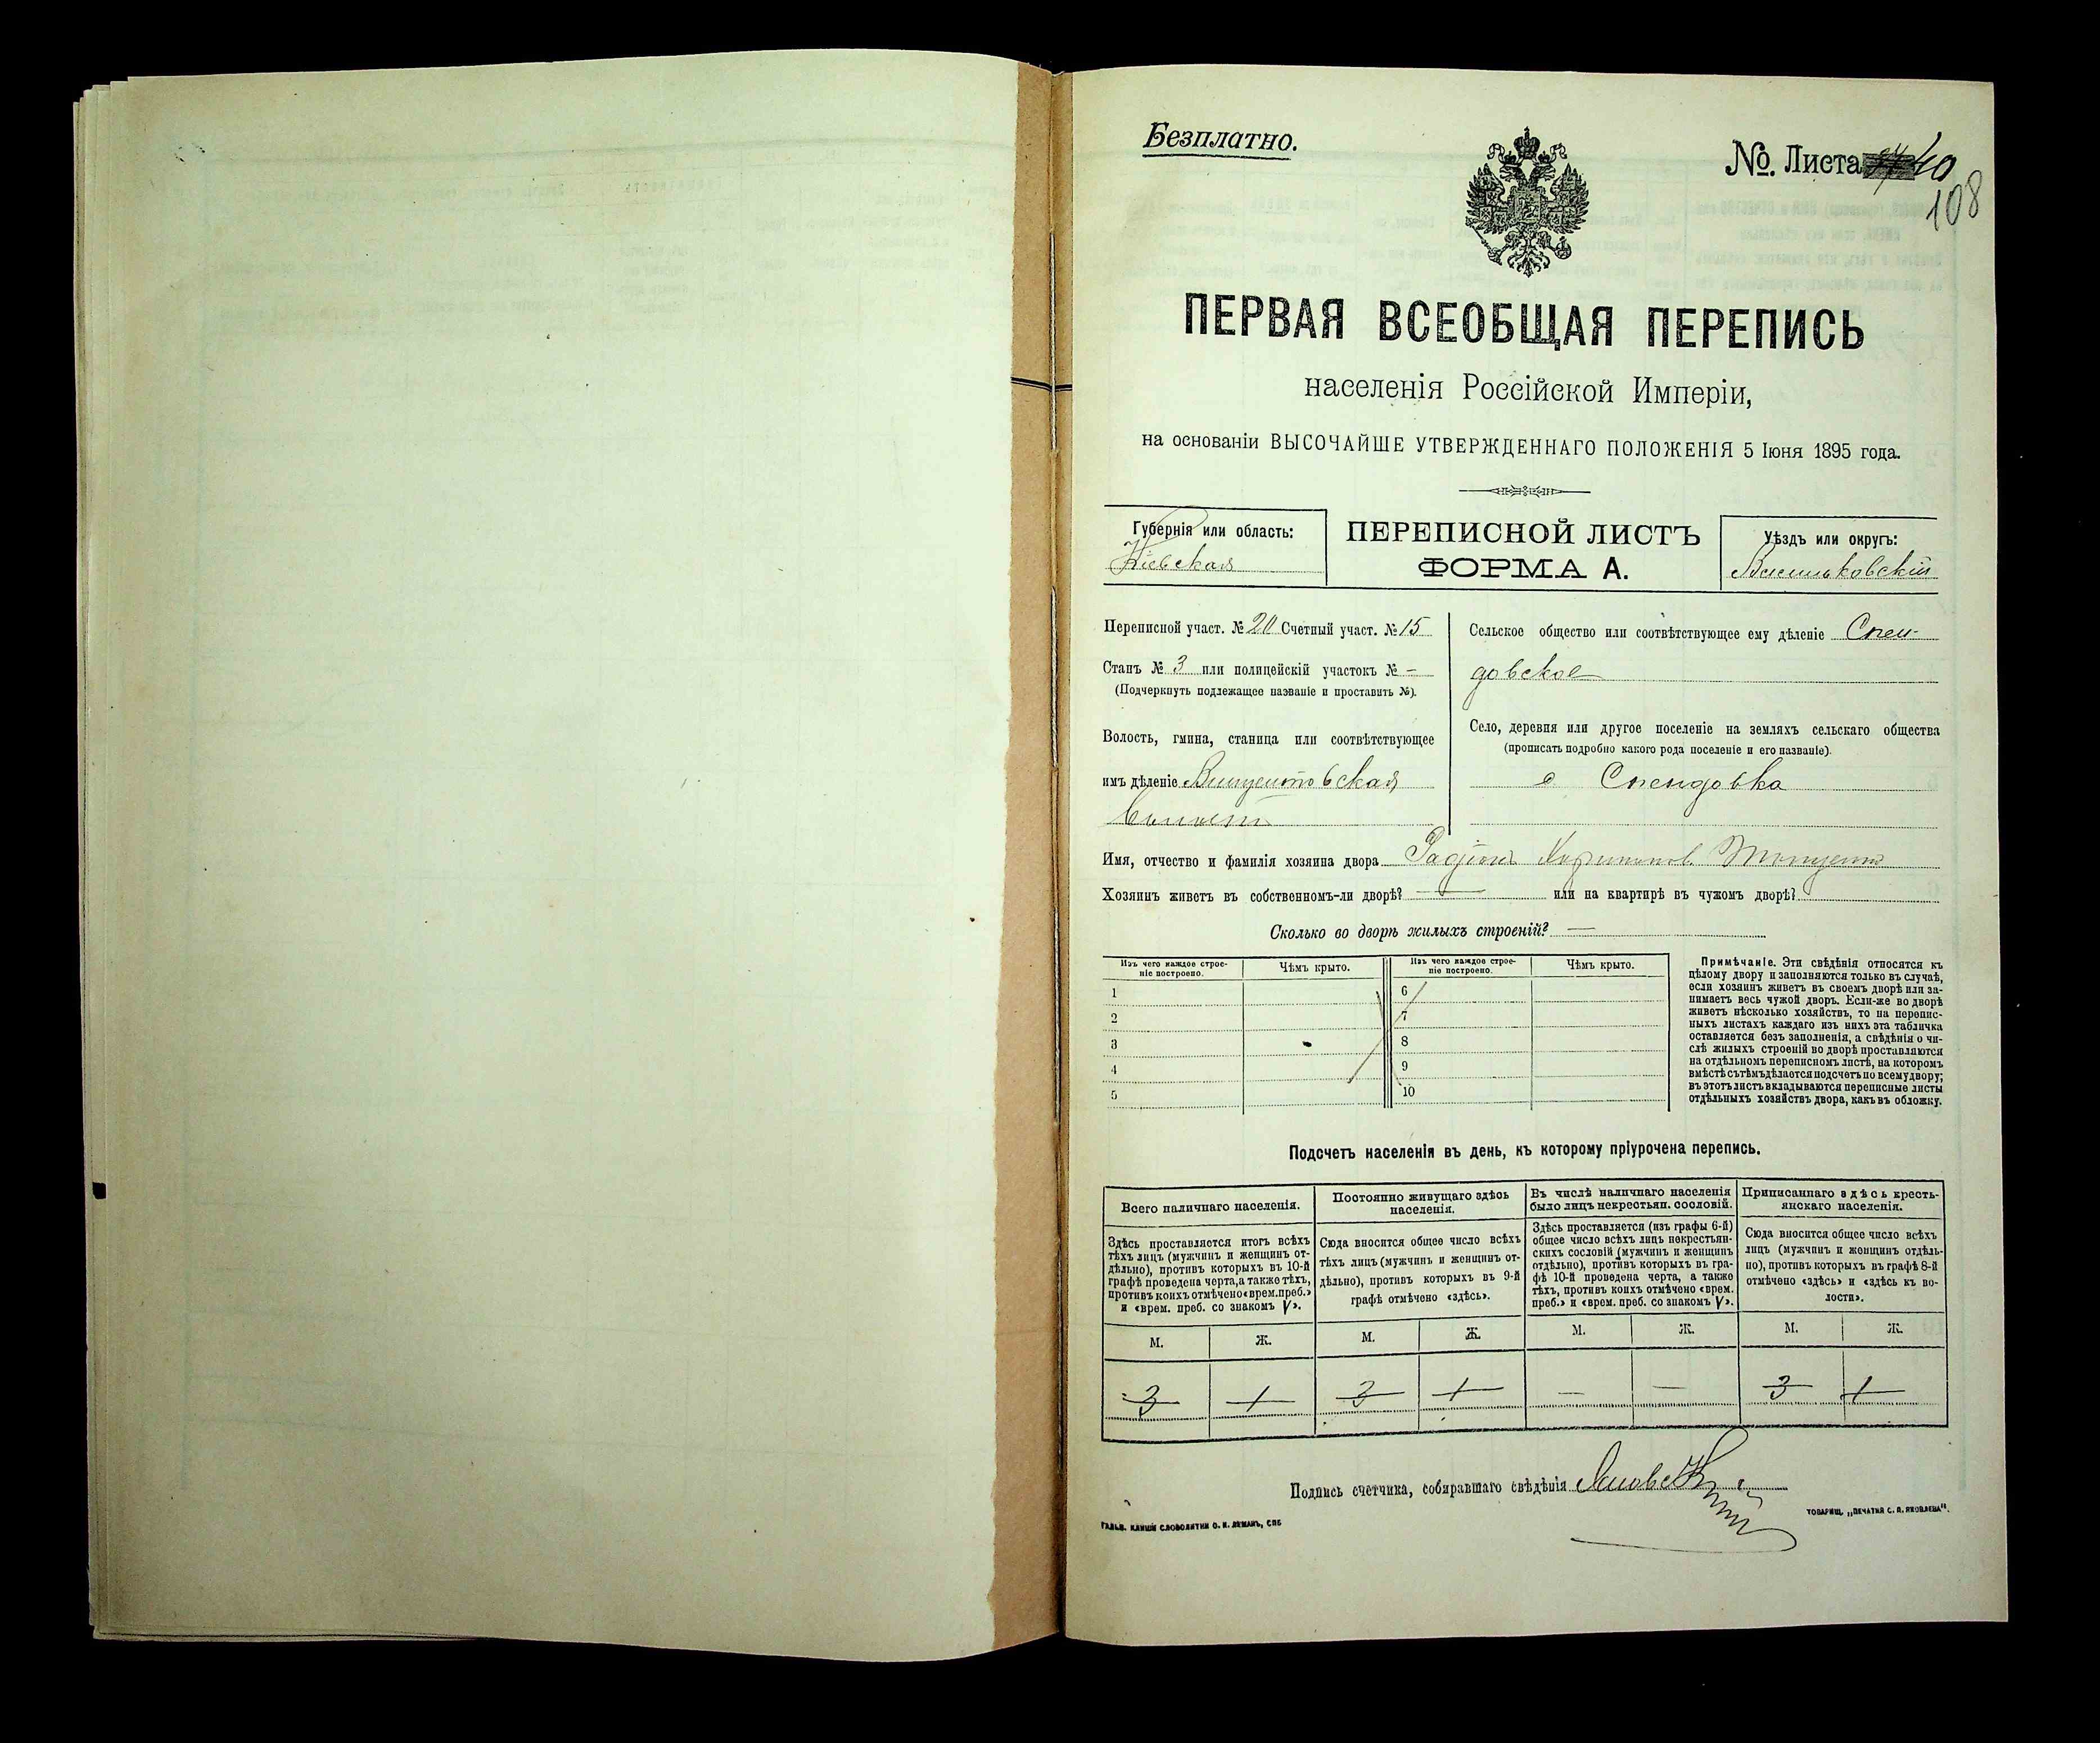 Безплатно.
№. Листа 40
108
ПЕРВАЯ ВСЕОБЩАЯ ПЕРЕПИСЬ
населенія Россійской Имперіи,
на основаніи ВЫСОЧАЙШЕ УТВЕРЖДЕННАГО ПОЛОЖЕНІЯ 5 Іюня 1895 года.
Губернія или область:
Кіевская
ПЕРЕПИСНОЙ ЛИСТЪ
ФОРМА А.
Уѣздъ или округъ:
Васильковскій
Переписной участ. № 20 Счетный участ. № 15
Станъ № 3 или полицейскій участокъ № -
(Подчеркнуть подлежащее названіе и проставить №).
Волость, гмина, станица или соотвѣтствующее
имъ дѣленіе Винцентовская
Сельское общество или соотвѣтствующее ему дѣленіе Спен-
довское
Село, деревня или другое поселеніе на земляхъ сельскаго общества
(прописать подробно какого рода поселеніе и его названіе).
с Спендовка
Имя, отчество и фамилія хозяина двора Радіонъ
Хозяинъ живетъ въ собственномъ-ли дворѣ? — или на квартирѣ въ чужомъ дворѣ?
Сколько во дворѣ жилыхъ строеній? —
Изъ чего каждое строе-
ніе построено.
Чѣмъ крыто.
Изъ чего каждое строе-
ніе построено.
Чѣмъ крыто.
1
2
3
4
5
6
7
8
9
10
Примѣчаніе. Эти свѣдѣнія относятся къ
цѣлому двору и заполняются только въ случаѣ,
если хозяинъ живетъ въ своемъ дворѣ или за-
нимаетъ весь чужой дворъ. Если-же во дворѣ
живетъ нѣсколько хозяйствъ, то на перепис-
ныхъ листахъ каждаго изъ нихъ эта табличка
оставляется безъ заполненія, а свѣдѣнія о чи-
слѣ жилыхъ строеній во дворѣ проставляются
на отдѣльномъ переписномъ листѣ, на которомъ
вмѣстѣ съ тѣмъ дѣлается подсчетъ по всему двору;
въ этотъ листъ вкладываются переписные листы
отдѣльныхъ хозяйствъ двора, какъ въ обложку.
Подсчетъ населенія въ день, къ которому пріурочена перепись.
Всего наличнаго населенія.
Здѣсь проставляется итогъ всѣхъ
тѣхъ лицъ (мужчинъ и женщинъ от-
дѣльно), противъ которыхъ въ 10-й
графѣ проведена черта, а также тѣхъ,
противъ коихъ отмѣчено «врем. преб.»
и «врем. преб. со знакомъ V».
Постоянно живущаго здѣсь
населенія.
Сюда вносится общее число всѣхъ
тѣхъ лицъ (мужчинъ и женщинъ от-
дѣльно), противъ которыхъ въ 9-й
графѣ отмѣчено «здѣсь».
Въ числѣ наличнаго населенія
было лицъ некрестьян. сословій.
Здѣсь проставляется (изъ графы 6-й)
общее число всѣхъ лицъ некрестьян-
скихъ сословій (мужчинъ и женщинъ
отдѣльно), противъ которыхъ въ гра-
фѣ 10-й проведена черта, а также
тѣхъ, противъ коихъ отмѣчено «врем.
преб.» и «врем. преб. со знакомъ V».
Приписаннаго здѣсь кресть-
янскаго населенія.
Сюда вносится общее число всѣхъ
лицъ (мужчинъ и женщинъ отдѣль-
но), противъ которыхъ въ графѣ 8-й
отмѣчено «здѣсь» и «здѣсь къ во-
лости».
М. Ж. М. Ж. М. Ж. М. Ж.
3 1 3 1 — — 3 1
Подпись счетчика, собиравшаго свѣдѣнія
ГАЛЬВ. КЛИШИ СЛОВОЛИТНИ О. И. ЛЕМАНЪ, СПБ
ТОВАРИЩ. „ПЕЧАТНЯ С. П. ЯКОВЛЕВА".